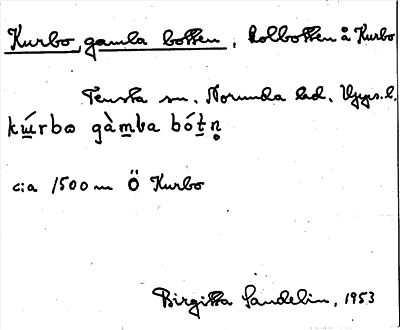 Kurbo, gamla botten, Kolbotten å Kurbo
Tensta sn. Norunda hd. Upps.l.
kúrbo gàmba bótn̥
c:a 1500 m Ö Kurbo
Birgitta Sandelin, 1953